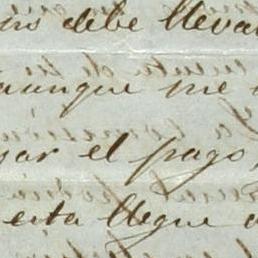 debe lleva
aunque me
gar el pago,
esta llegue a